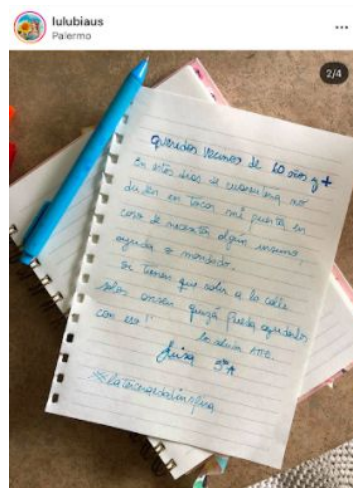 lulubiaus
Palermo
2/4
queridos vecinos de 60 años y +
En estos días de cuarentena no
duden en tocar mi puerta en
caso de necesitar algún insumo,
ayuda o mandado.
Si tienen que salir a la calle
solos avisen quizá pueda ayudarlos
con eso!!
los saluda ATTE.
Luisa 5º A